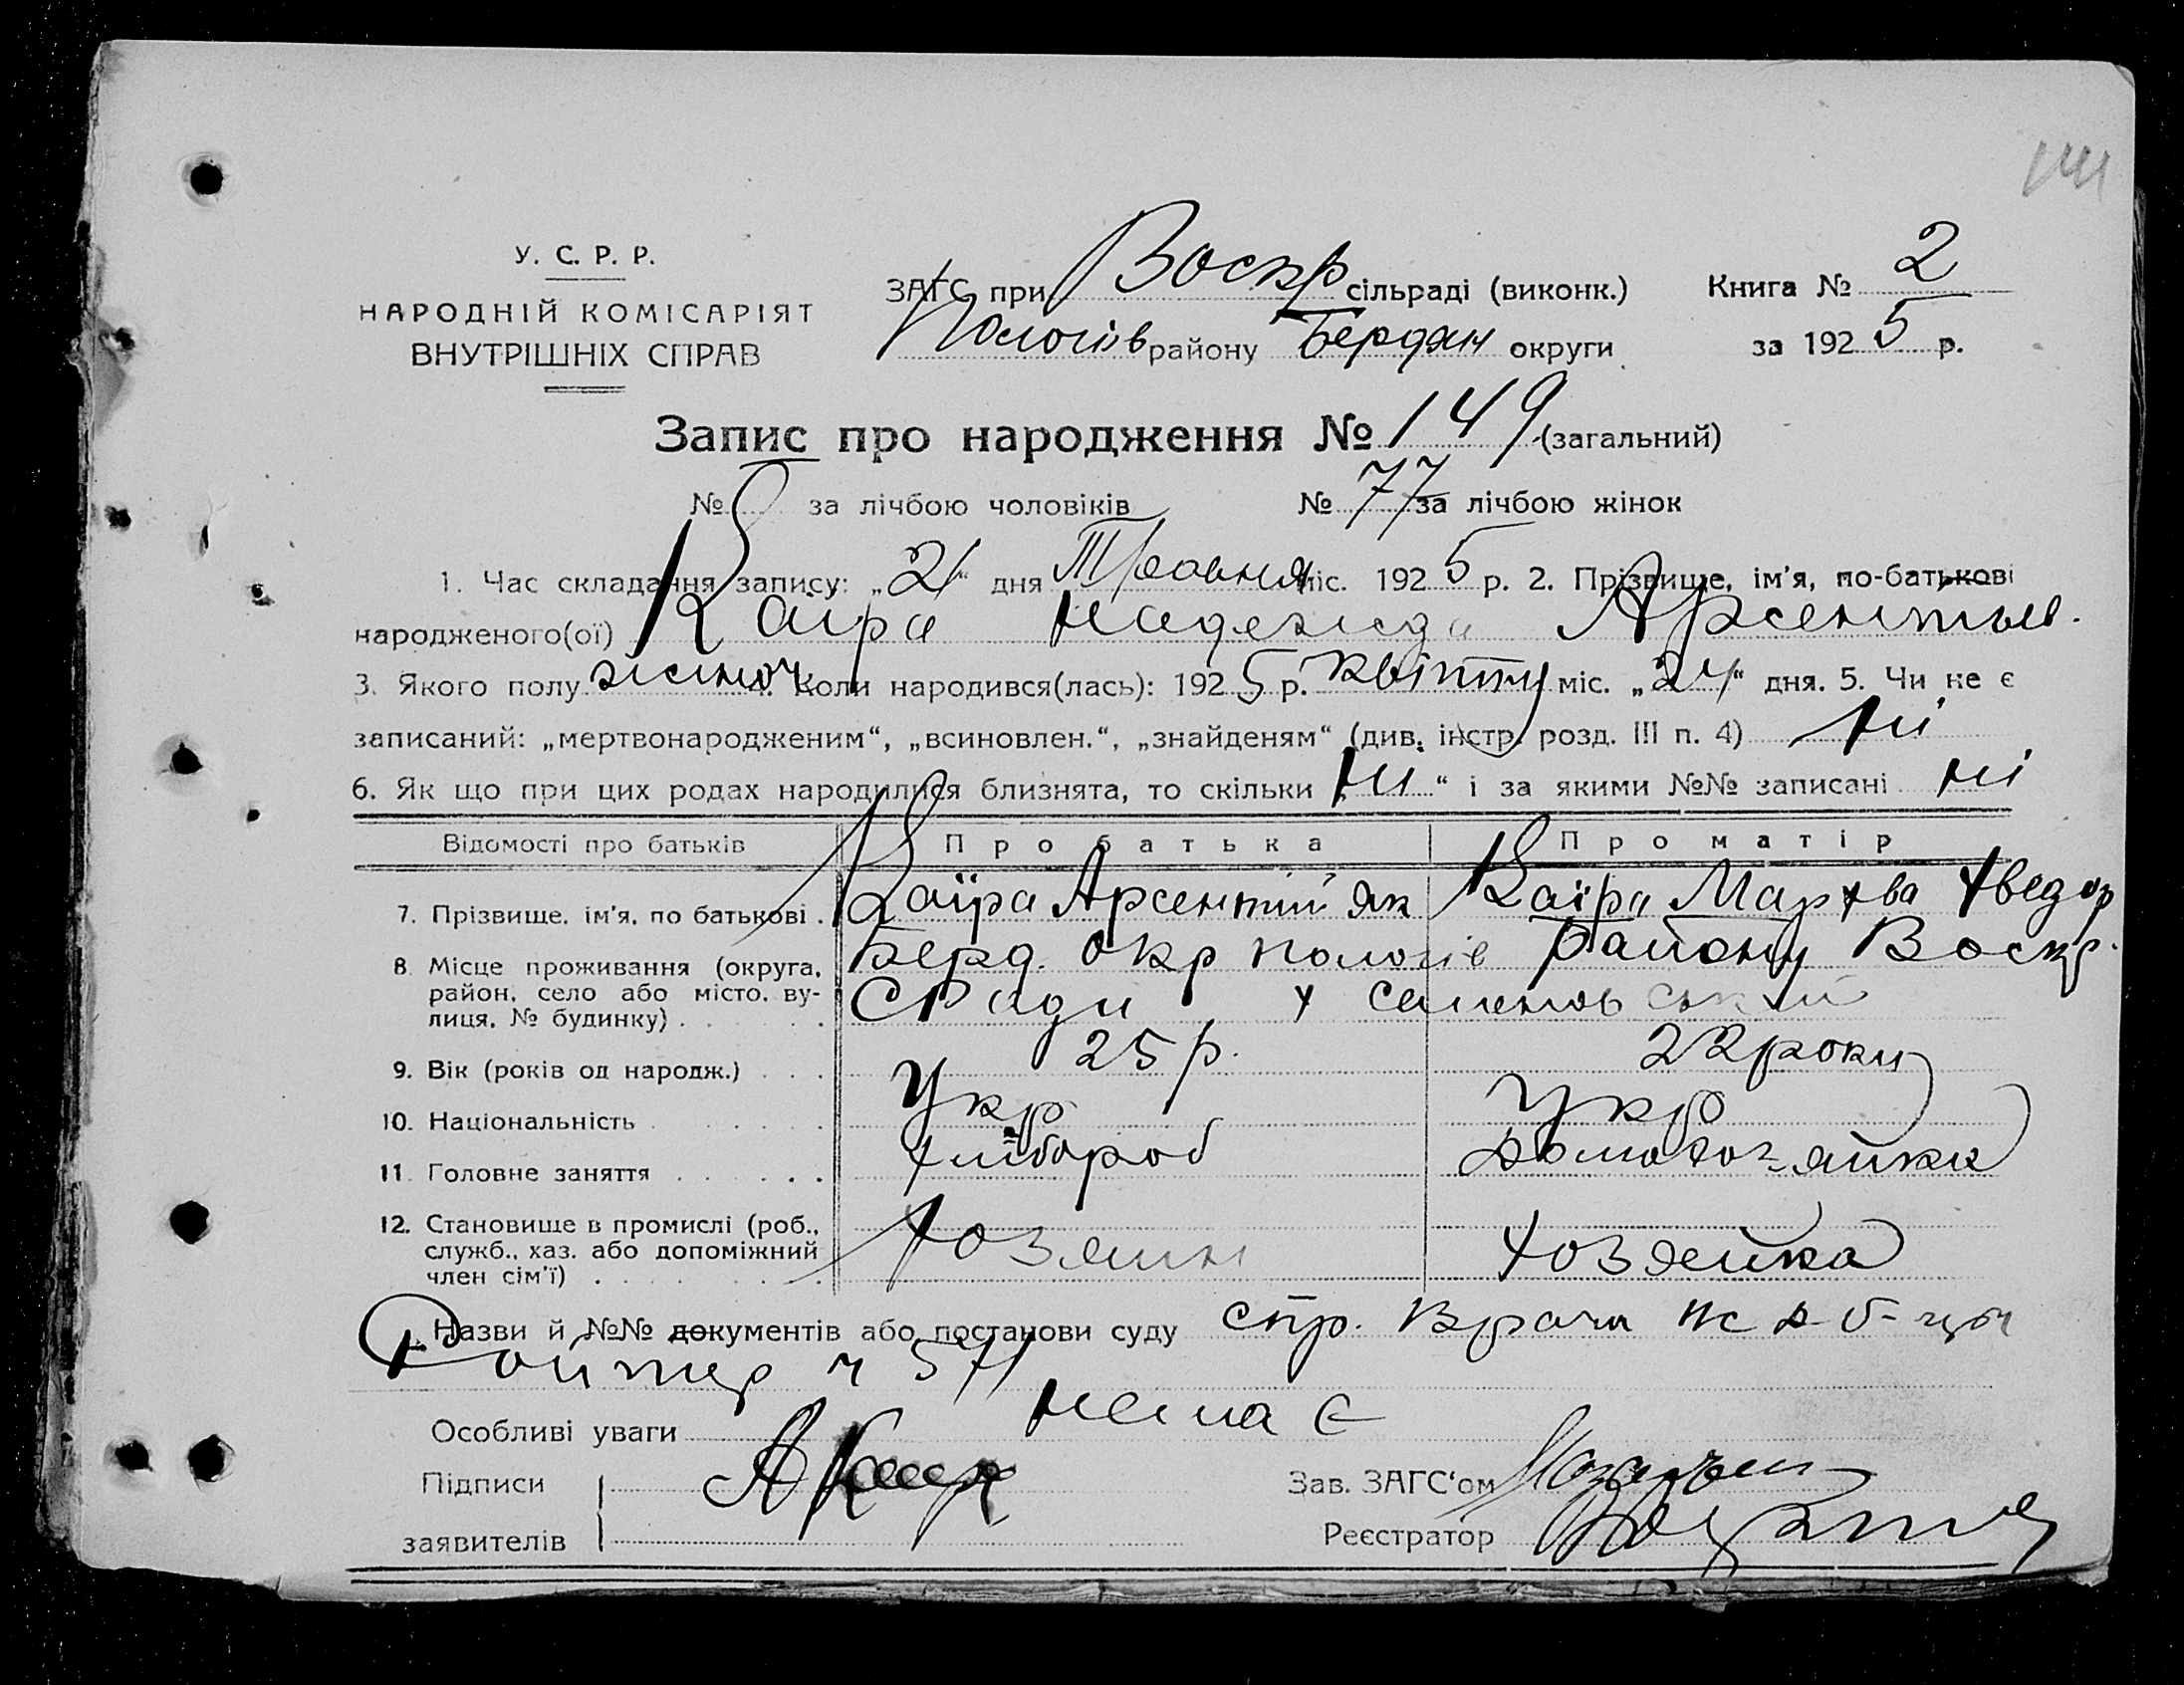 У. С. Р. Р.
НАРОДНІЙ КОМІСАРІЯТ
ВНУТРІШНІХ СПРАВ
ЗАГС при Воскр сільраді (виконк.)
Пологів району Бердян округи
Книга № 2
за 1925 р.
Запис про народження № 149 (загальний)
№ за лічбою чоловіків № 77 за лічбою жінок
1. Час складання запису: „21“ дня Травня міс. 1925 р. 2. Прізвище, ім'я, по-батькові
народженого(ої) Каіра Надежда Арсентьев.
3. Якого полу жіноч 4. Коли народився(лась): 1925 р. квітня міс. „24“ дня. 5. Чи не є
записаний: „мертвонародженим“, „всиновлен.“, „знайденям“ (див. інстр. розд. III п. 4) ні
6. Як що при цих родах народилися близнята, то скільки „ні“ і за якими №№ записані ні
Відомості про батьків Про батька Про матір
7. Прізвище, ім'я, по батькові . Каїра Арсентій Як Каїра Мархва Хведор
8. Місце проживання (округа, район, село або місто, ву-лиця, № будинку) . Берд. Окр Пологів Району Воскр.
СРади х Семеновський
9. Вік (років од народж.) . . . 25 р. 22 роки
10. Національність Укр Укр
11. Головне заняття Хлібороб домохозяйка
12. Становище в промислі (роб., служб., хаз. або допоміжний член сім'ї) . Хозяин Хозяйка
Назви й №№ документів або постанови суду спр. Врача
ч 571
Особливі уваги немає
Підписи А Каир Зав. ЗАГС'ом
заявителів Реєстратор